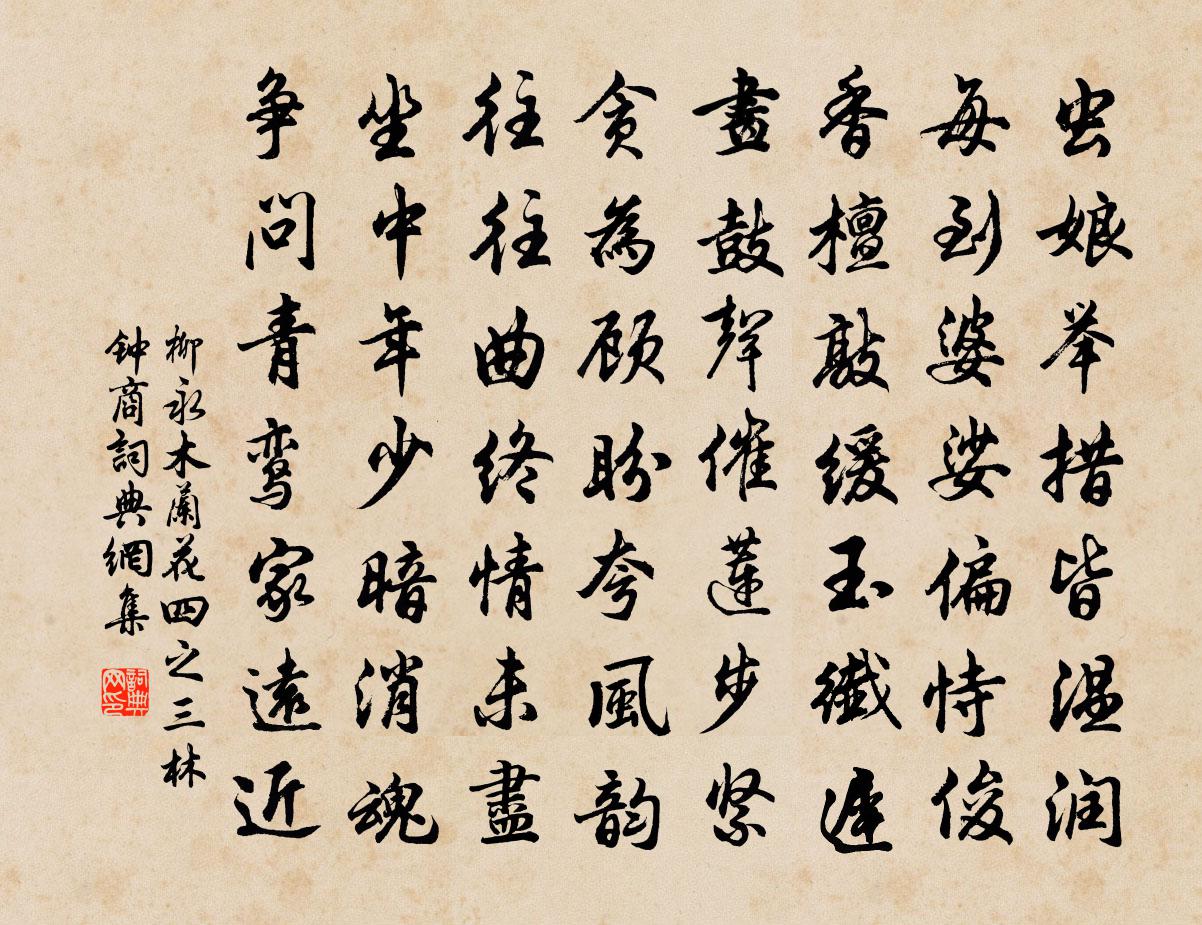 虫娘举措皆温润
每到婆娑偏恃俊
香檀敲缓玉纖遲
畫鼓聲催蓮步紧
贪為顾盼夸風韵
往往曲终情未盡
坐中年少暗消魂
争问青鸾家遠近
柳永木蘭花四之三林
钟商詞典網集
詞典网印